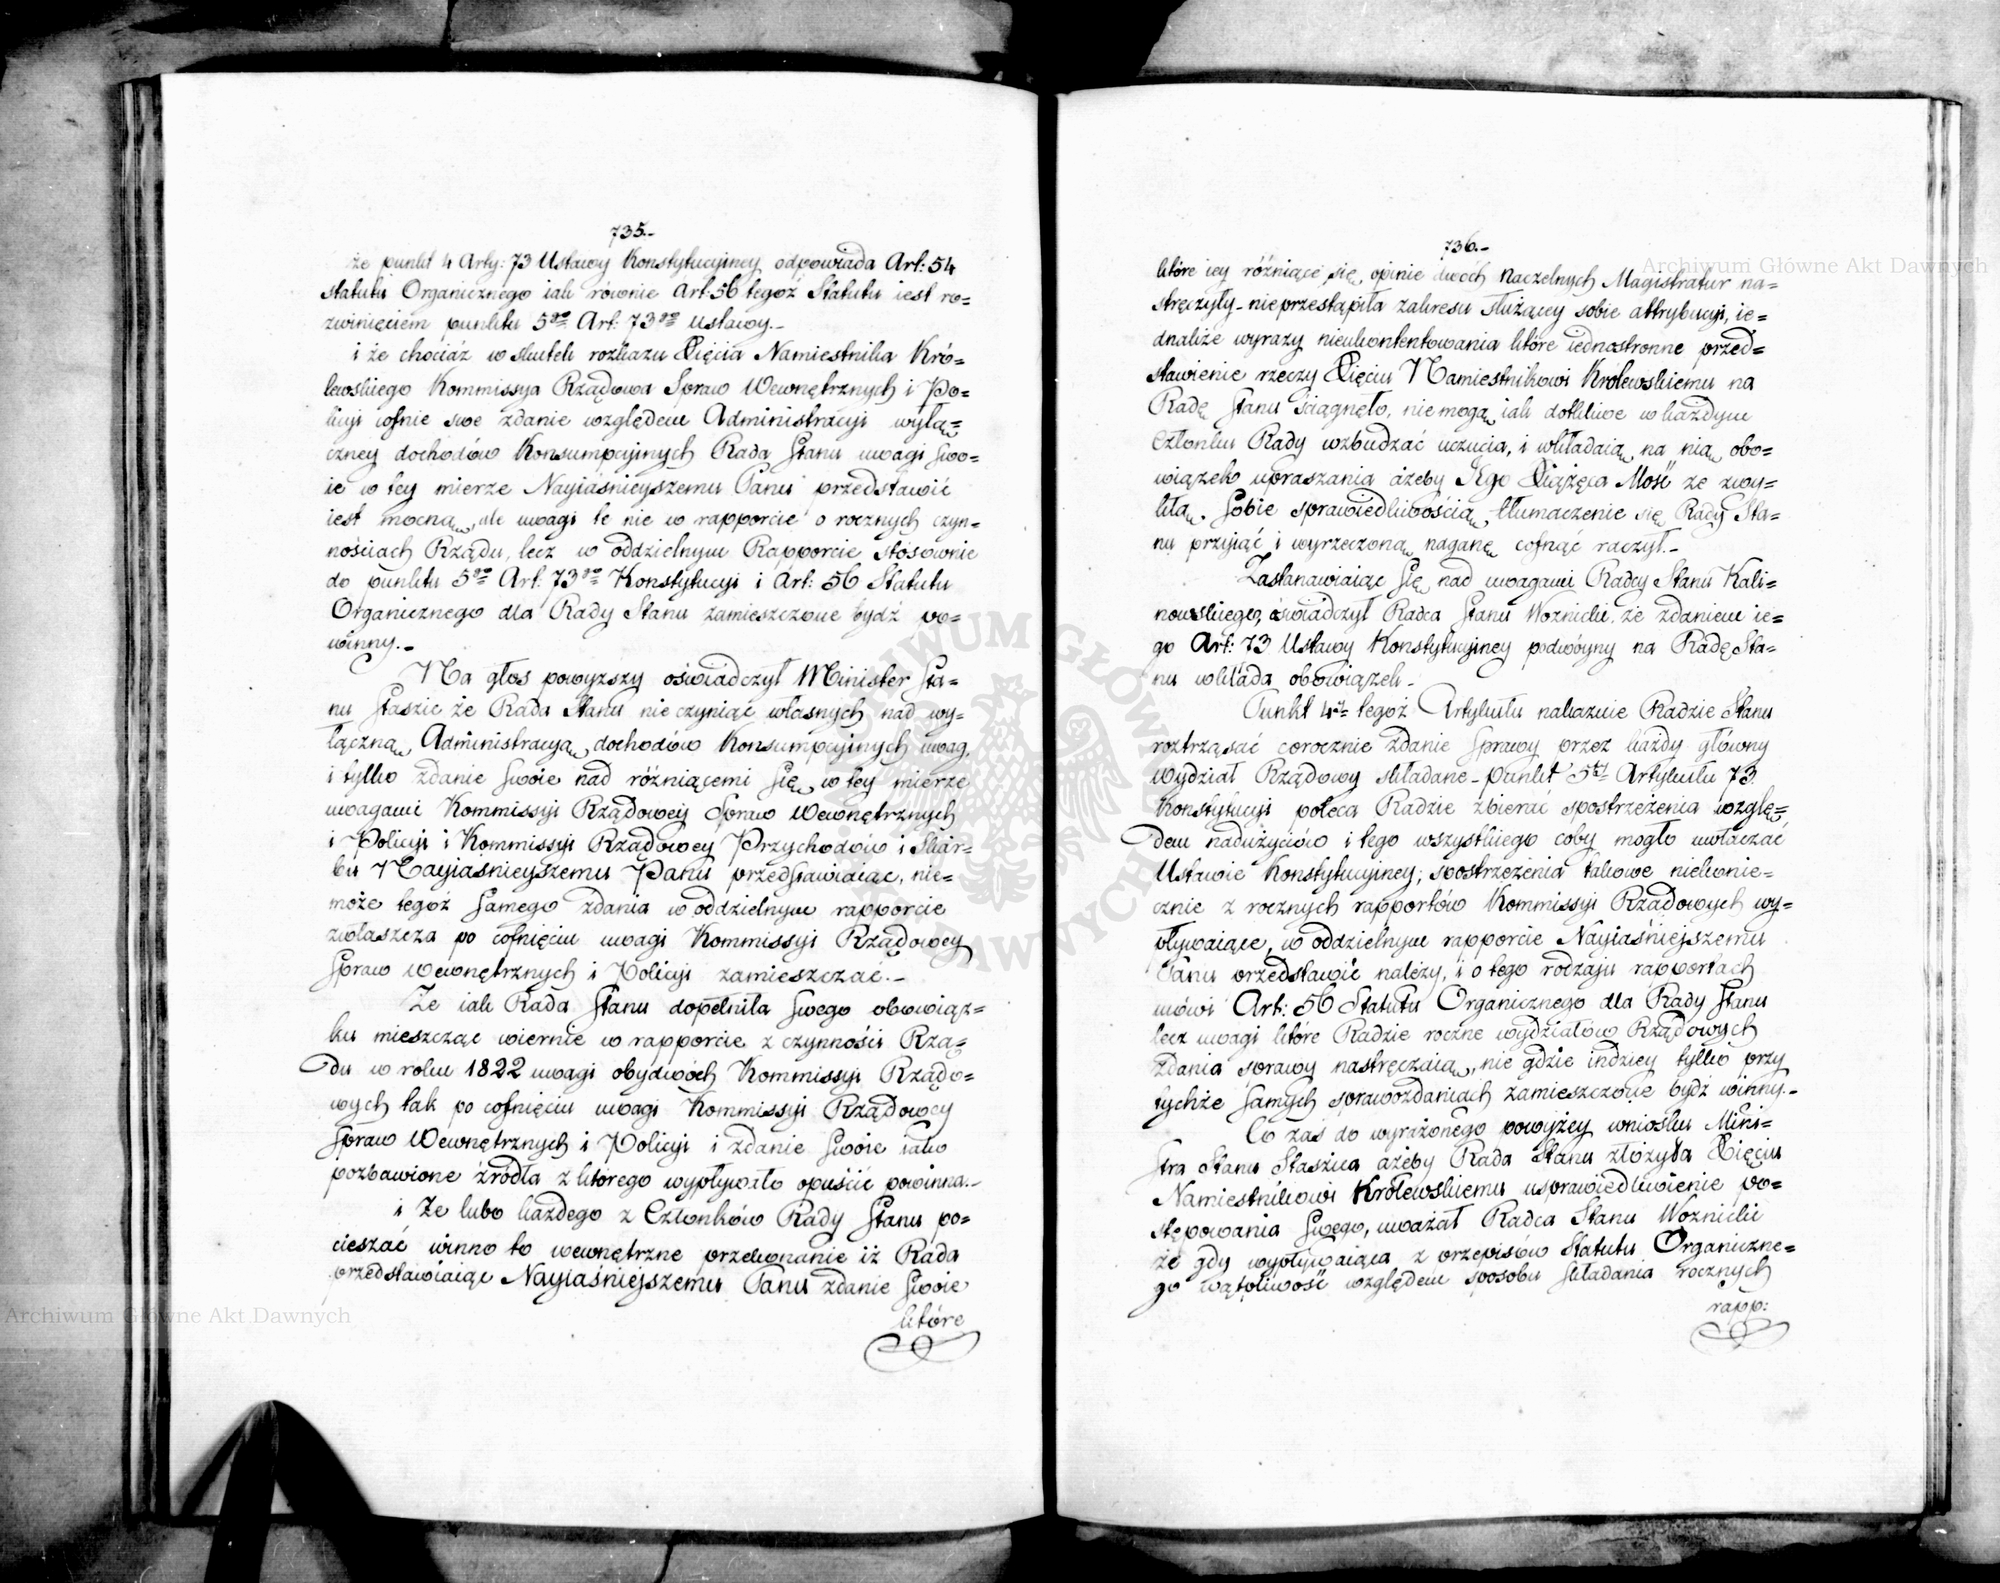 735.-
że punkt 4 Arty: 73 Ustawy Konstytucyiney odpowiada Art: 54
statutu Organicznego iak równie Art. 56 tegoż Statutu iest ro=
zwinięciem punktu 5go Art: 73go Ustawy.-
i że chociaż w skutek rozkazu Xięcia Namiestnika Kró=
lewskiego Kommissya Rządowa Spraw Wewnętrznych i Po=
licyi cofnie swe zdanie względem Administracyi wyłą=
czney dochodów Konsumpcyinych Rada Stanu uwagi swo=
ie w tey mierze Nayiaśnieyszemu Panu przedstawić
iest mocną, ale uwagi te nie w rapporcie o rocznych czyn=
nościach Rządu, lecz w oddzielnym Rapporcie stósownie
do punktu 5go Art. 73go Konstytucyi i Art: 56 Statutu
Organicznego dla Rady Stanu zamieszczone bydź po=
winny.-
Na głos powyższy oświadczył Minister Sta=
nu Staszic że Rada Stanu nie czyniąc własnych nad wy=
łączną Administracyą dochodów Konsumpcyinych uwag,
i tylko zdanie swoie nad różniącemi się w tey mierze
uwagami Kommissyi Rządowey Spraw Wewnętrznych
i Policyi i Kommissyi Rządowey Przychodów i Skar=
bu Nayiaśnieyszemu Panu przedstawiaiąc, nie=
może tegoż samego zdania w oddzielnym rapporcie
zwłaszcza po cofnięciu uwagi Kommissyi Rządowey
Spraw Wewnętrznych i Policyi zamieszczać.-
Że iak Rada Stanu dopełniła swego obowiąz=
ku mieszcząc wiernie w rapporcie z czynności Rzą=
du w roku 1822 uwagi obydwóch Kommissyi Rządo=
wych tak po cofnięciu uwagi Kommissyi Rządowey
Spraw Wewnętrznych i Policyi i zdanie swoie iako
pozbawione źródła z którego wypływało opuścić powinna.-
i Że lubo każdego z Członków Rady Stanu po=
cieszać winno to wewnętrzne przekonanie iż Rada
przedstawiaiąc Nayiaśniejszemu Panu zdanie swoie
które
736.-
które iey różniące się opinie dwóch Naczelnych Magistratur na=
stręczyły - nieprzestąpiła zakresu służącey sobie attrybucyi, ie=
dnakże wyrazy nieukontentowania które iednostronne przed=
stawienie rzeczy Xięciu Namiestnikowi Królewskiemu na
Radę Stanu ściągnęło, nie mogą iak dotkliwe w każdym
Członku Rady wzbudzać uczucia, i wkładaią na nią obo=
wiązek upraszania ażeby JEgo Xiążęca Mość ze zwy=
kłą Sobie sprawiedliwością tłumaczenie się Rady Sta=
nu przyiąć i wyrzeczoną naganę cofnąć raczył.-
Zastanawiaiąc się nad uwagami Radcy Stanu Kali=
nowskiego, oświadczył Radca Stanu Woznicki, że zdaniem ie=
go Art: 73 Ustawy Konstytucyiney podwóyny na Radę Sta=
nu wkłada obowiązek.-
Punkt 4ty tegoż Artykułu nakazuie Radzie Stanu
roztrząsać corocznie zdanie sprawy przez każdy główny
wydział Rządowy składane - punkt 5ty Artykułu 73
Konstytucyi poleca Radzie zbierać spostrzeżenia wzglę=
dem nadużyciów i tego wszystkiego coby mogło uwłaczać
Ustawie Konstytucyiney; spostrzeżenia takowe niekonie=
cznie z rocznych rapportów Kommissyi Rządowych wy=
pływaiące, w oddzielnym rapporcie Nayiaśniejszemu
Panu przedstawić należy, i o tego rodzaju rapportach
mówi Art: 56 Statutu Organicznego dla Rady Stanu
lecz uwagi które Radzie roczne wydziałów Rządowych
zdania sprawy nastręczaią, nie gdzie indziey tylko przy
tychże samych sprawozdaniach zamieszczone bydź winny.-
Co zaś do wyrażonego powyżey wniosku Mini=
stra Stanu Staszica ażeby Rada Stanu złożyła Xięciu
Namiestnikowi Królewskiemu usprawiedliwienie po=
stępowania swego, uważał Radca Stanu Woznicki
że gdy wypływaiąca z przepisów Statutu Organiczne=
go wątpliwość względem sposobu składania rocznych
rapp:
Archiwum Główne Akt Dawnych
Archiwum Główne Akt Dawnych
ARCHIWUM GŁÓWNE AKT DAWNYCH